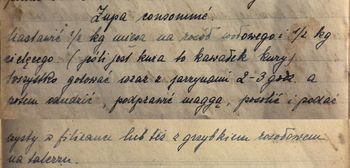 Zupa consommé.
Nastawić 1/2 kg mięsa na rosół wołowego i 1/2 kg
cielęcego (jeśli jest kura to kawałek kury)
wszystko gotować wraz z jarzynami 2-3 godz. a
potem cedzić, podprawić maggą, posolić i podać
czysty w filiżance lub też z grzybkiem rosołowem
na talerzu.